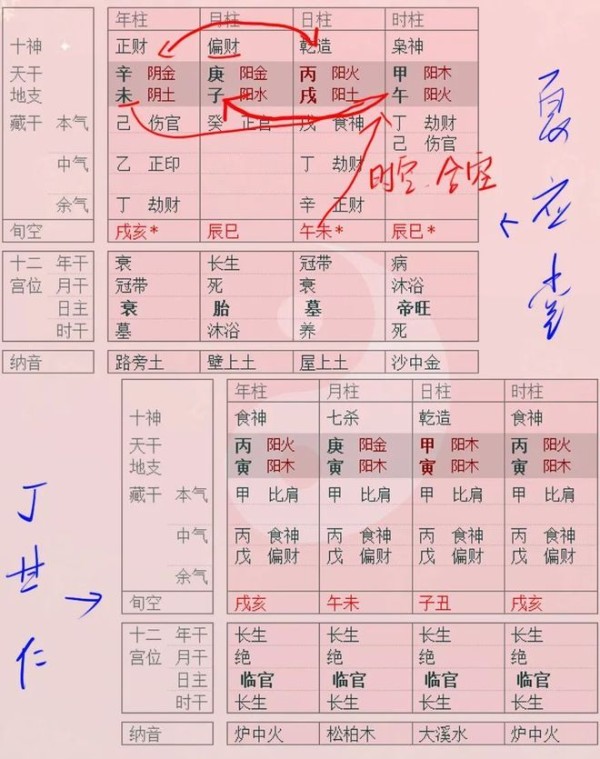 年柱 月柱 日柱 时柱
十神 正财 偏财 乾造 枭神
天干 辛 阴金 庚 阳金 丙 阳火 甲 阳木
地支 未 阴土 子 阳水 戌 阳土 午 阳火
藏干 本气 己 伤官 癸 正官 戊 食神 丁 劫财
己 伤官
中气 乙 正印 丁 劫财
余气 丁 劫财 辛 正财
旬空 戌亥* 辰巳 午未* 辰巳*
十二 年干 衰 长生 冠带 病
宫位 月干 冠带 死 衰 沐浴
日主 衰 胎 墓 帝旺
时干 墓 沐浴 养 死
纳音 路旁土 壁上土 屋上土 沙中金
时空 合空
夏应堂
年柱 月柱 日柱 时柱
十神 食神 七杀 乾造 食神
天干 丙 阳火 庚 阳金 甲 阳木 丙 阳火
地支 寅 阳木 寅 阳木 寅 阳木 寅 阳木
藏干 本气 甲 比肩 甲 比肩 甲 比肩 甲 比肩
中气 丙 食神 丙 食神 丙 食神 丙 食神
戊 偏财 戊 偏财 戊 偏财 戊 偏财
余气
旬空 戌亥 午未 子丑 戌亥
十二 年干 长生 长生 长生 长生
宫位 月干 绝 绝 绝 绝
日主 临官 临官 临官 临官
时干 长生 长生 长生 长生
纳音 炉中火 松柏木 大溪水 炉中火
丁甘仁